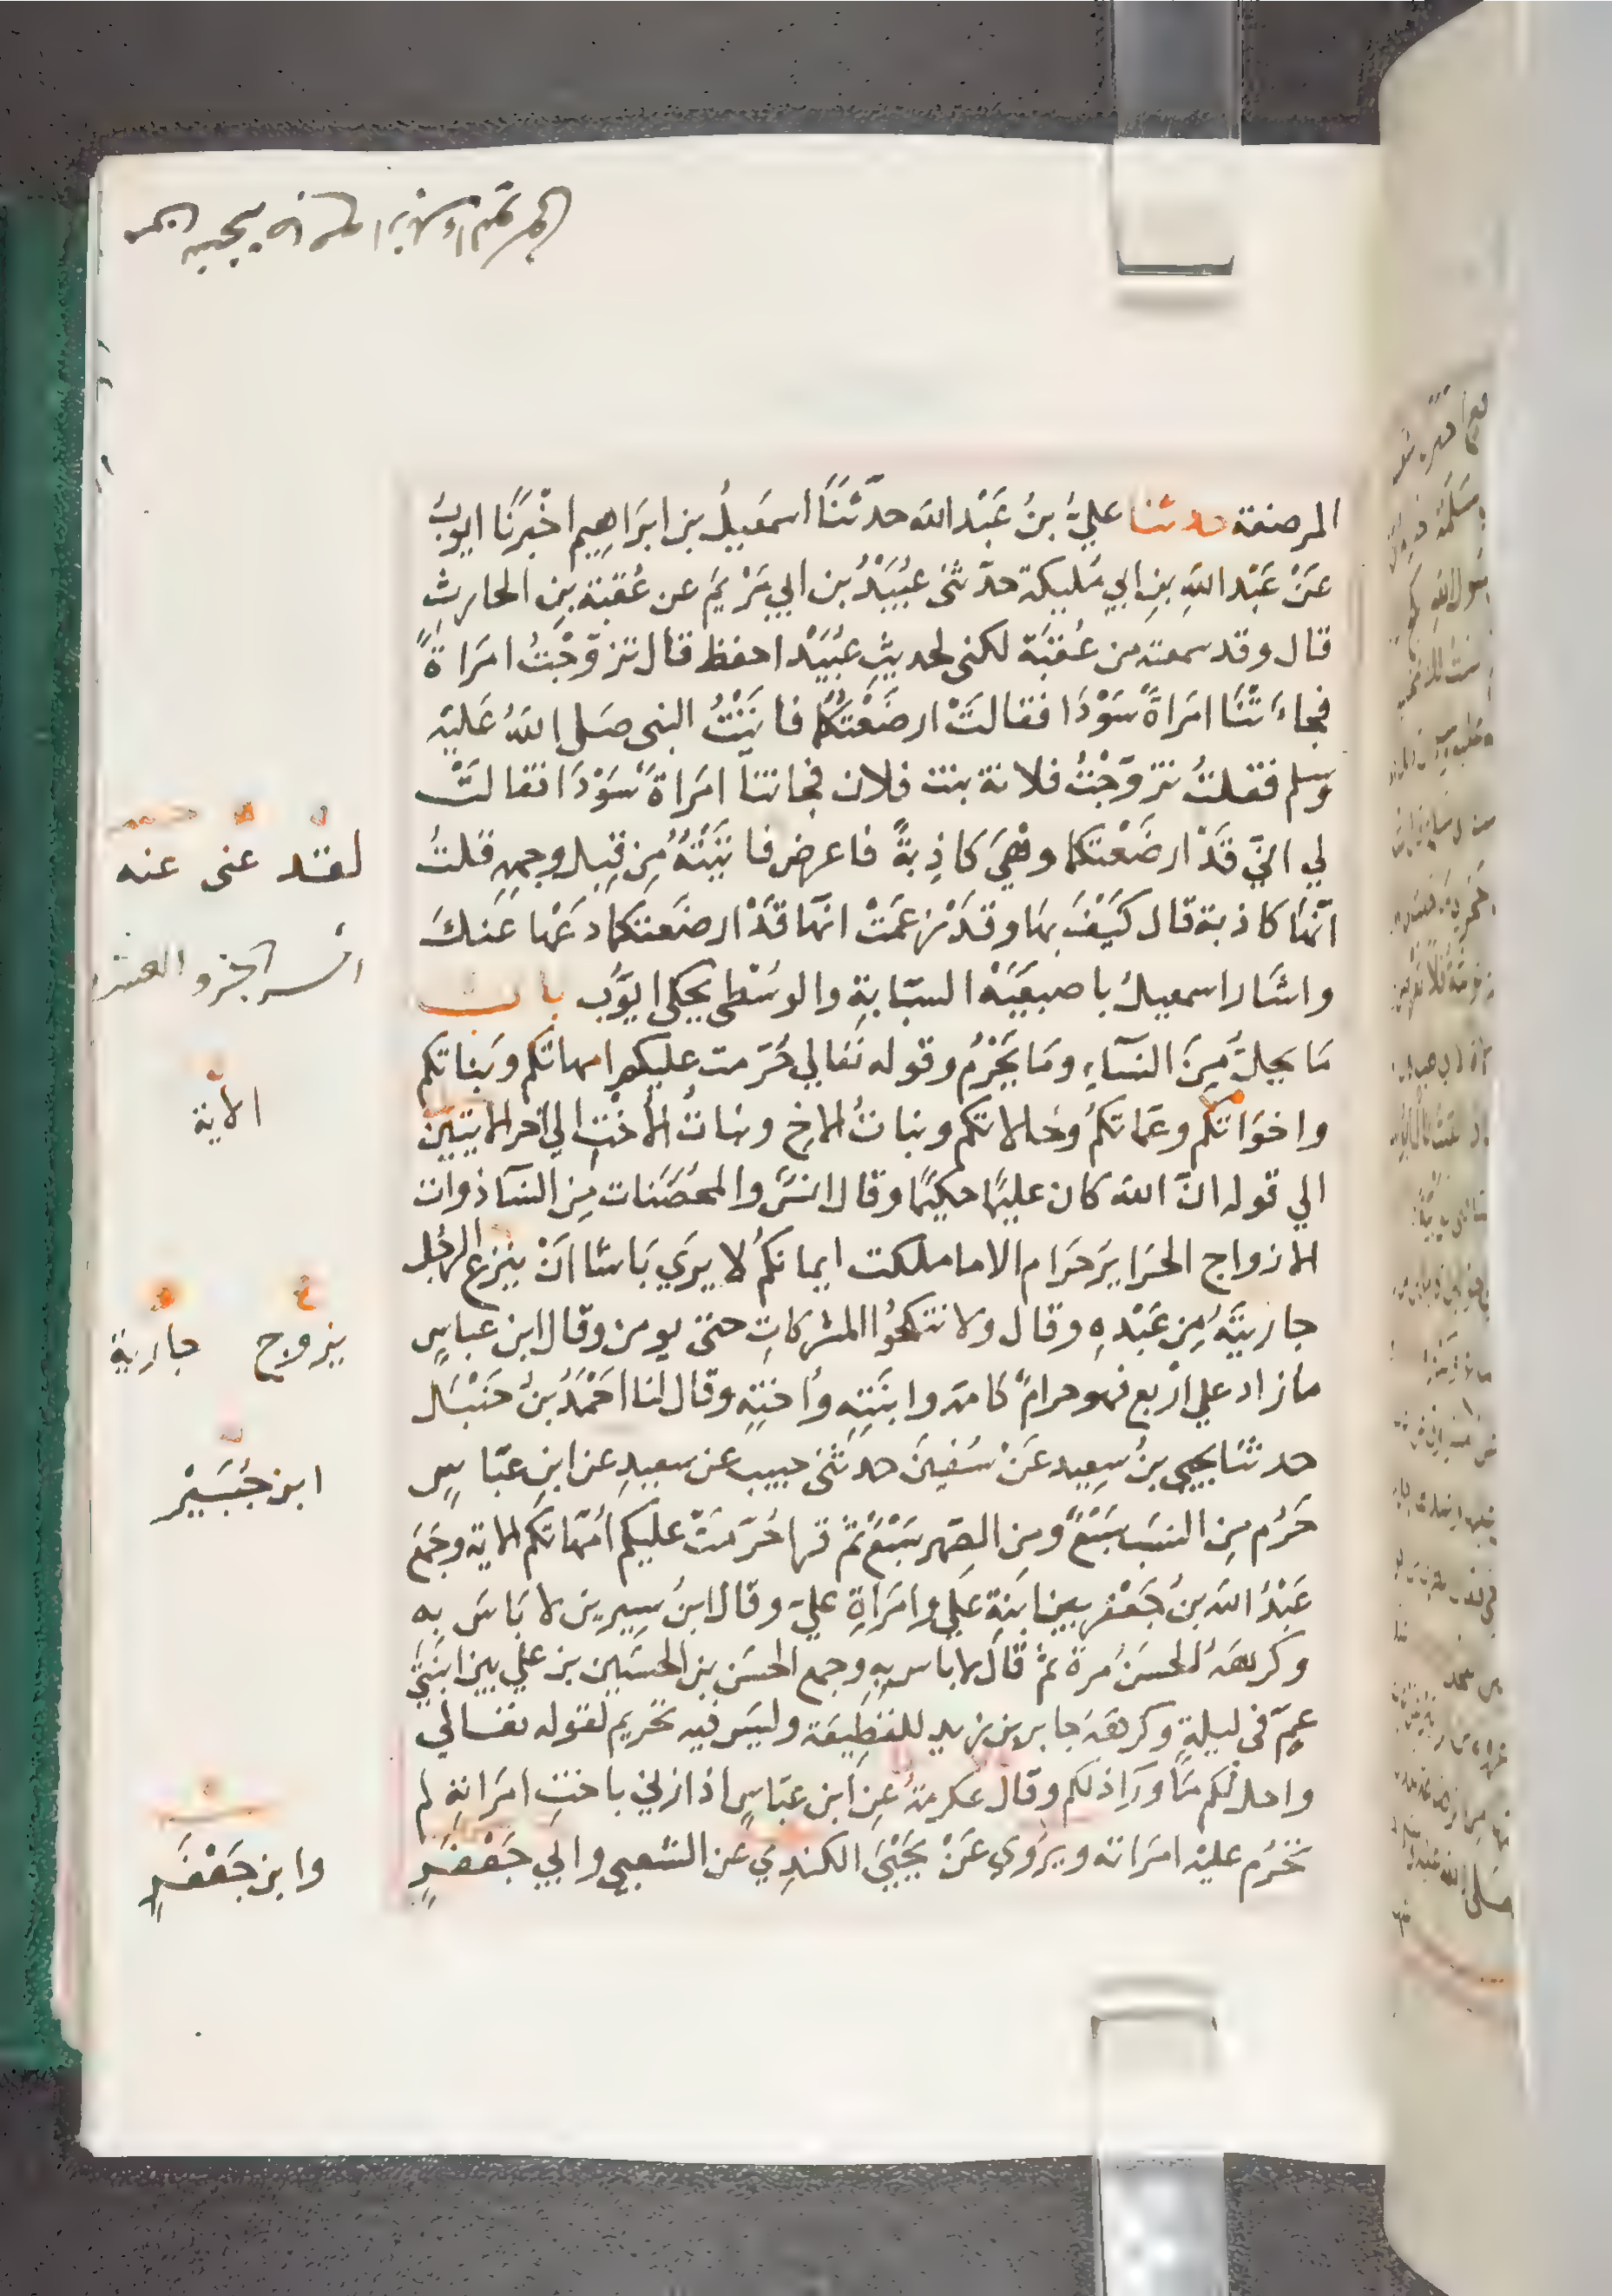 المرضعة حدثنا عليُّ بنُ عَبْد الله حدَّثنَا اسمَعيلُ بن ابرَاهِيم اخْبرَنا ايوبُ
عَنْ عَبْد اللهِ بنِ ابي مُليكة حدّثنى عُبَيْدُ بن ابي مَرْيَمَ عن عُقْبَة بنِ الحارِثِ
قال وقد سمعته من عُقبَة لكنى لحديثِ عُبَيْد احفظ قال تزوّجْتُ امرَاةً
فجاءَتْنَا امرَاةٌ سَوْدَا فقالَتْ ارضَعْتكُما فاتَيْتُ النبى صَلى اللهُ عَليْه
وسلم فقلتُ تزوّجْتُ فلانة بنت فلان فجاتنا امرَاةٌ سَوْدَا فقالَتْ
لي انّي قَدْ ارضَعْتكما وهْيَ كَاذِبةٌ فاعرض فاتَيْتُهُ مِن قِبَل وجههِ قلتُ
انّهَا كاذبة قال كَيْفَ بهَا وقدْ زعمَتْ انّها قَدْ ارضعَتكما دَعْها عَنكَ
واشَار اسمعيلُ باصبعَيْه السبّابةِ والوسْطى يحكى ايوَّب باب
مَا يحلُّ مِنَ النسَآءِ ومَا يَحْرُمُ وقوله تعَالي حُرّمت عليكم امهاتكم وبَناتكم
واخوَاتكم وعَماتكُم وخالاتكم وبناتُ الاخ وبناتُ الأختِ الي اخر الايتيَنْ
الي قوله انّ الله كان عليمًا حكيمًا وقال انسٌ والمحْصَنات مِن النسَآ ذوات
الازواج الحرَاير حَرَام الا ما ملكت ايمانكُم لا يرَي بَاسًا انْ ينزع الرجُل
جاريتَهُ مِن عَبْدهِ وقال ولا تنكحُوا المشركاتِ حتى يومن وقال ابن عباسٍ
ما زاد علي اربع فهو حرامٌ كامه وابنَتِه وأختِهِ وقال لنا احْمَدُ بنُ حَنْبَل
حدثنَا يحيى بنُ سعِيد عَنْ سُفينَ حدثنى حبيب عن سعيدٍ عن ابنِ عبّاسٍ
حَرُم مِن النسَب سَبْعٌ ومن الصّهر سَبْعٌ ثمّ قرا حُرّمَتْ عليكم أمّهاتكم الاية وجَمَع
عَبْدُ الله بنُ جَعْفر بين ابنَةِ عَلي وامرَاةِ عليّ وقال ابنُ سِيرين لا بَاسَ به
وكرِهَهُ الحسَنُ مرةً ثمّ قال لا باس بهِ وجمع الحسَن بن الحسَين بن علي بين ابنتَي
عمٍّ فى ليلةٍ وكرِهَهُ جابر بن زيدٍ للقطِيعَة وليسَ فيه تحريم لقوله تعَالي
واحل لكم مَا ورَآ ذلكم وقال عكرِمَةُ عِن ابن عبّاسٍ اذا زنى باختِ امرَاتِهِ لم
تحرُم عليْه امرَاته ويرُوي عَنْ يَحْيَى الكندِي عن الشعبى وابي جَعْفَرٍ
لقد عنى عنه
الآية
يزوج جارية
ابن جُبَيْرٍ
وابن جَعْفَرٍ